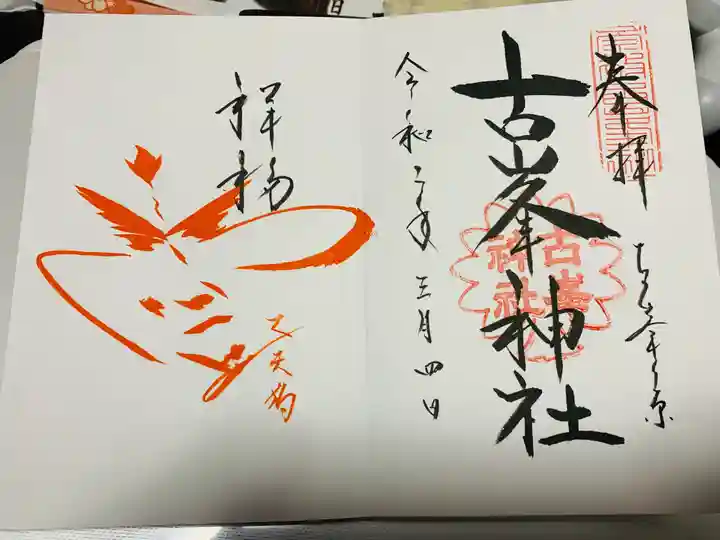 奉拝
古峯ヶ原
古峯神社
古峯神社
令和二年三月四日
祥福
天狗